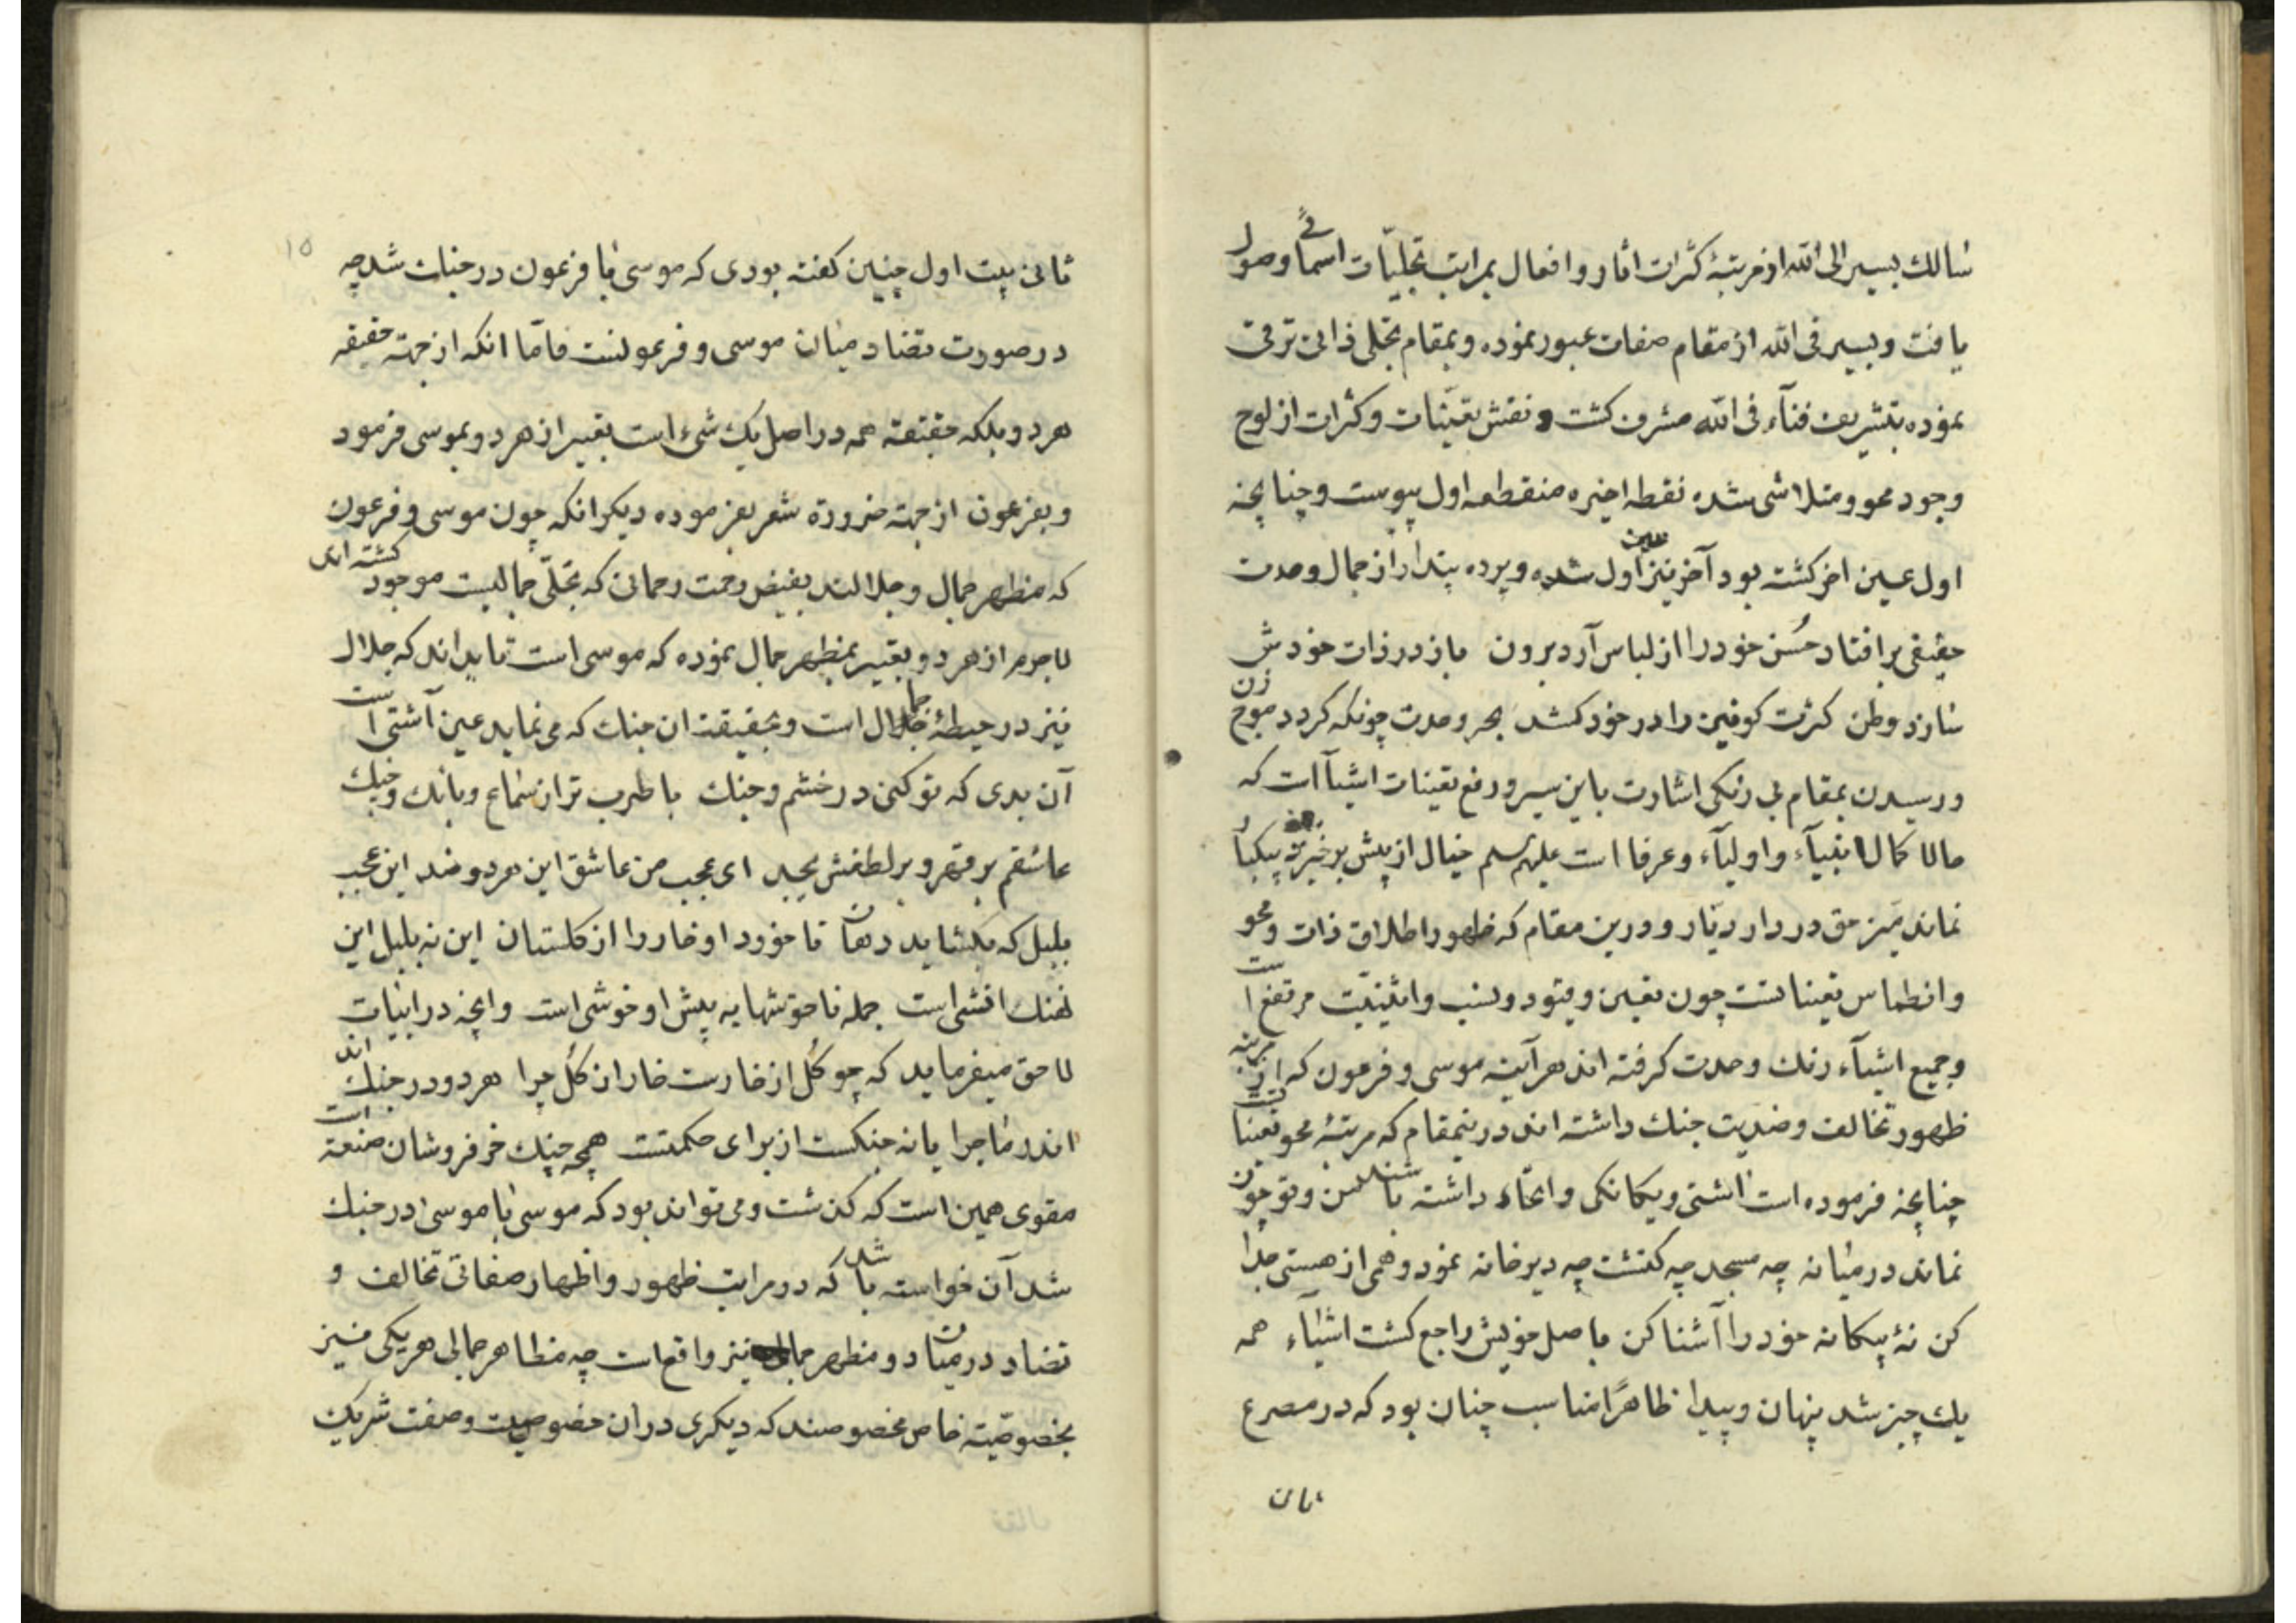 سالك بسیر الی الله از مرتبهٔ کثرات اثار و افعال بمراتب تجلیّات اسمائی وصول
یافت و بسیر فی الله از مقام صفات عبور نموده و بمقام تجلی ذاتی ترقی
نموده بتشریف فنآء فی الله مشرف کشت و نقش تعیّنات و کثرات از لوح
وجود محو و متلاشی شده نقطه اخیره منقطعه اول پیوست و چنانچه
اول عین اخر کشته بود آخر نیز عین اول شده و پرده پندار از جمال وحدت
حقیقی بر افتاد حُسن خود را از لباس آرد برون باز در ذات خودش
سازد وطن کثرت کونین را در خود کشد بحر وحدت چونکه کردد موج زن
و رسیدن بمقام بی رنکی اشارت باین سیر و رفع تعینات اشیآ است که
حالا کمال انبیآء و اولیآء و عرفا است علیهم سلم خیال از پیش برخیزد بیکبار
نماند غیر حق در دار دیّار و درین مقام که ظهور اطلاق ذات و محو
و انطماس تعیناتست چون تعین و قیود و نسب و اثنینیّت مرتفع است
و جمیع اشیآء رنك وحدت کرفته اند هر آینه موسی و فرعون که از مرتبه
ظهور تخالف و ضدیت جنك داشته اند درینمقام که مرتبهٔ محو تعینات
چنانچه فرموده است اشتی و یکانکی و اتحاد داشته باشند من و تو چون
نماند در میانه چه مسجد چه کنشت چه دیرخانه نمود وهمی از هستی جدا
کن نهٔ بیکانه خود را آشنا کن باصل خویش راجع کشت اشیآء همه
یك چیز شد پنهان و پیدا ظاهرًا مناسب چنان بود که در مصرع
ثانی
١٥
ثانی بیت اول چنین کفته بودی که موسی با فرعون در جنك شد چه
در صورت تضاد میان موسی و فرعونست فامّا انکه از جهة حقیقه
هر دو بلکه حقیقة همه در اصل یك شیء است تعبیر از هر دو بموسی فرمود
و بفرعون از جهة ضرورة شعر نفرموده دیکر انکه چون موسی و فرعون
که مظهر جمال و جلالند بفیض رحمت رحمانی که تجلّی جمالیست موجود کشته اند
لاجرم از هر دو تعبیر بمظهر جمال نموده که موسی است تا بداند که جلال
نیز در حیطهٔ جمال است و بحقیقت ان جنك که می نماید عین آشتی است
آن بدی که تو کنی در خشم و جنك با طرب تر از سماع و بانك و چنك
عاشقم بر قهر و بر لطفش بجد ای عجب من عاشق این هر دو ضد این عجب
بلبل که بکشاید دهان تا خورد او خار را از کلستان این نه بلبل این
نهنك اتشی است جمله ناخوشها به پیش او خوشی است و انچه در ابیات
لاحق میفرماید که چو کُل از خارست خار از کُل چرا هر دو در جنك اند
اندر ماجرا یا نه جنکست از برای حکمتست همچه جنك خر فروشان صنعة است
مقوی همین است که کذشت و می تواند بود که موسی با موسی در جنك
شد آن خواسته باشد که در مراتب ظهور و اظهار صفاتی تخالف و
تضاد در میان دو مظهر جمالی نیز واقع است چه مظاهر جمالی هر یکی نیز
بخصوصیّته خاص مخصوصند که دیکری در ان خصوصیت و صفت شریك